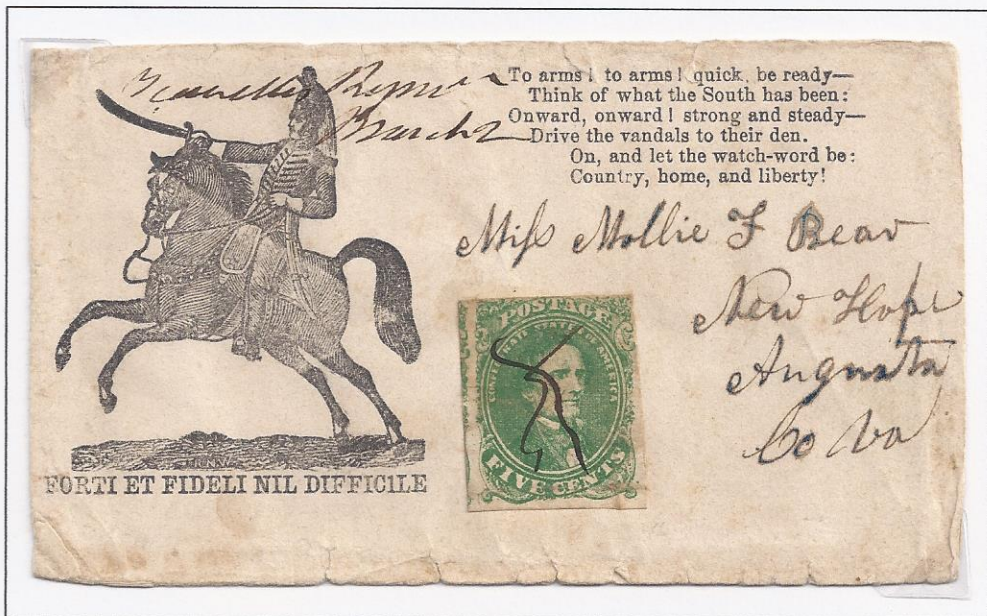 March 2
To arms! to arms! quick, be ready—
Think of what the South has been:
Onward, onward! strong and steady—
Drive the vandals to their den.
On, and let the watch-word be:
Country, home, and liberty!
Miss Mollie F Bear
New Hope
Augusta
Co Va
POSTAGE
CONFEDERATE STATES OF AMERICA
FIVE CENTS
FORTI ET FIDELI NIL DIFFICILE